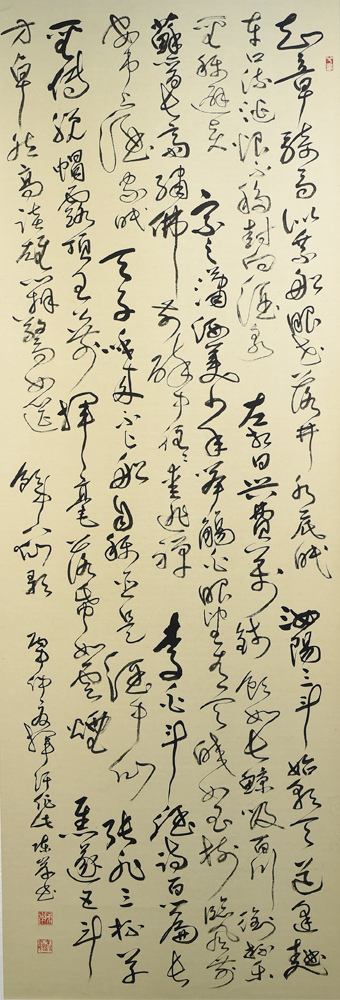 知章騎馬似乘船眼花落井水底眠汝陽三斗始朝天道逢麴
車口流涎恨不移封向酒泉左相日興費萬錢飲如長鯨吸百川銜杯樂
聖稱避賢宗之瀟灑美少年舉觴白眼望青天皎如玉樹臨風前
蘇晉長齋繡佛前醉中往往愛逃禪李白斗酒詩百篇長
安市上酒家眠天子呼來不上船自稱臣是酒中仙張旭三杯草
聖傳脫帽露頂王公前揮毫落紙如雲煙焦遂五斗
方卓然高談雄辯驚四筵 飲八仙歌 仲夏揮汗作此